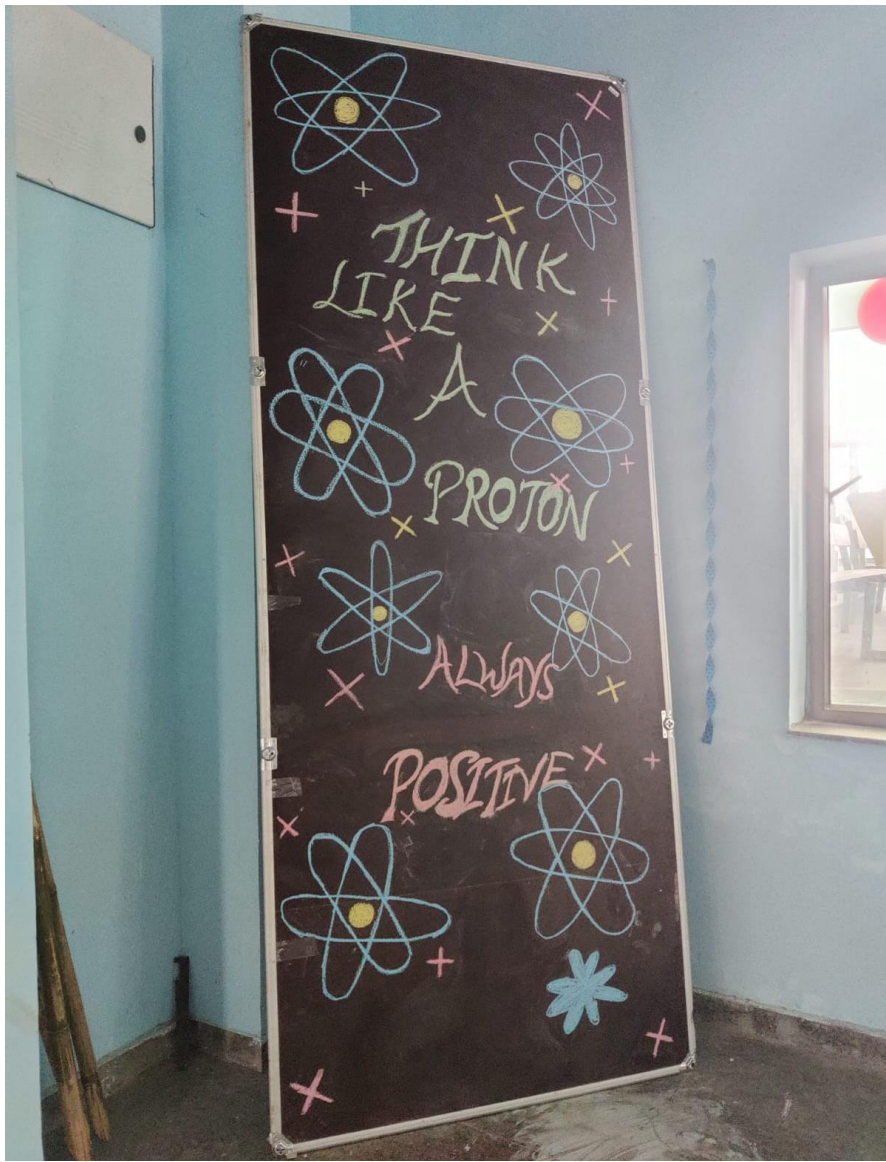 THINK
LIKE
A
PROTON
ALWAYS
POSITIVE